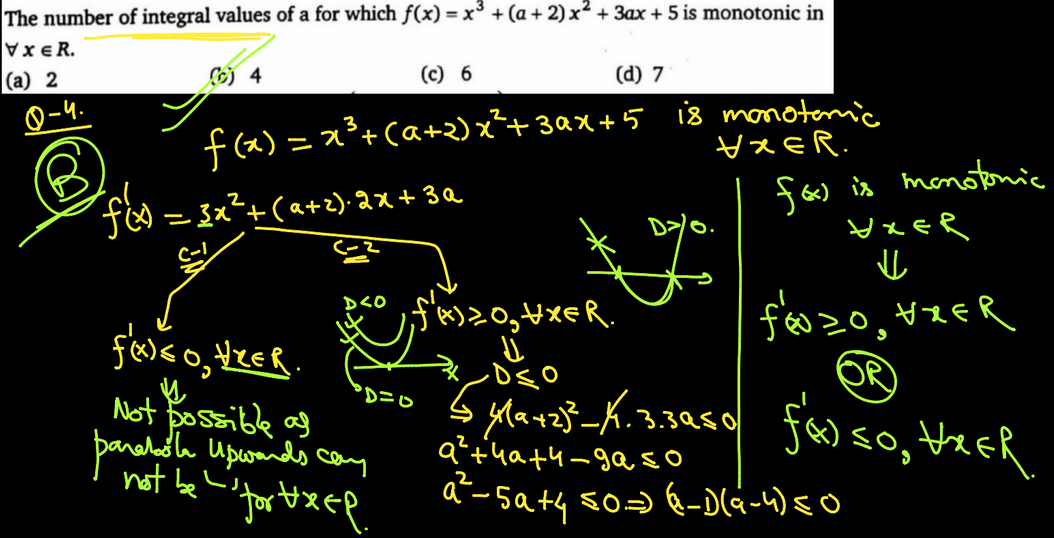 The number of integral values of a for which f(x) = x³ + (a + 2) x² + 3ax + 5 is monotonic in
∀ x ∈ R.
(a) 2 (b) 4 (c) 6 (d) 7
Q-4.
B
f(x) = x³ + (a+2) x² + 3ax + 5 is monotonic
∀ x ∈ R.
f'(x) = 3x² + (a+2)·2x + 3a
C-1
C-2
f'(x) ≤ 0, ∀x∈R.
⇓
Not possible as
parabola upwards can
not be for ∀x∈R.
D<0
D=0
f'(x) ≥ 0, ∀x∈R.
⇓
D ≤ 0
4(a+2)² − 4.3.3a ≤ 0
a² + 4a + 4 − 9a ≤ 0
a² − 5a + 4 ≤ 0 ⇒ (a−1)(a−4) ≤ 0
D>0.
f(x) is monotonic
∀ x ∈ R
⇓
f'(x) ≥ 0, ∀x∈R
OR
f'(x) ≤ 0, ∀x∈R.